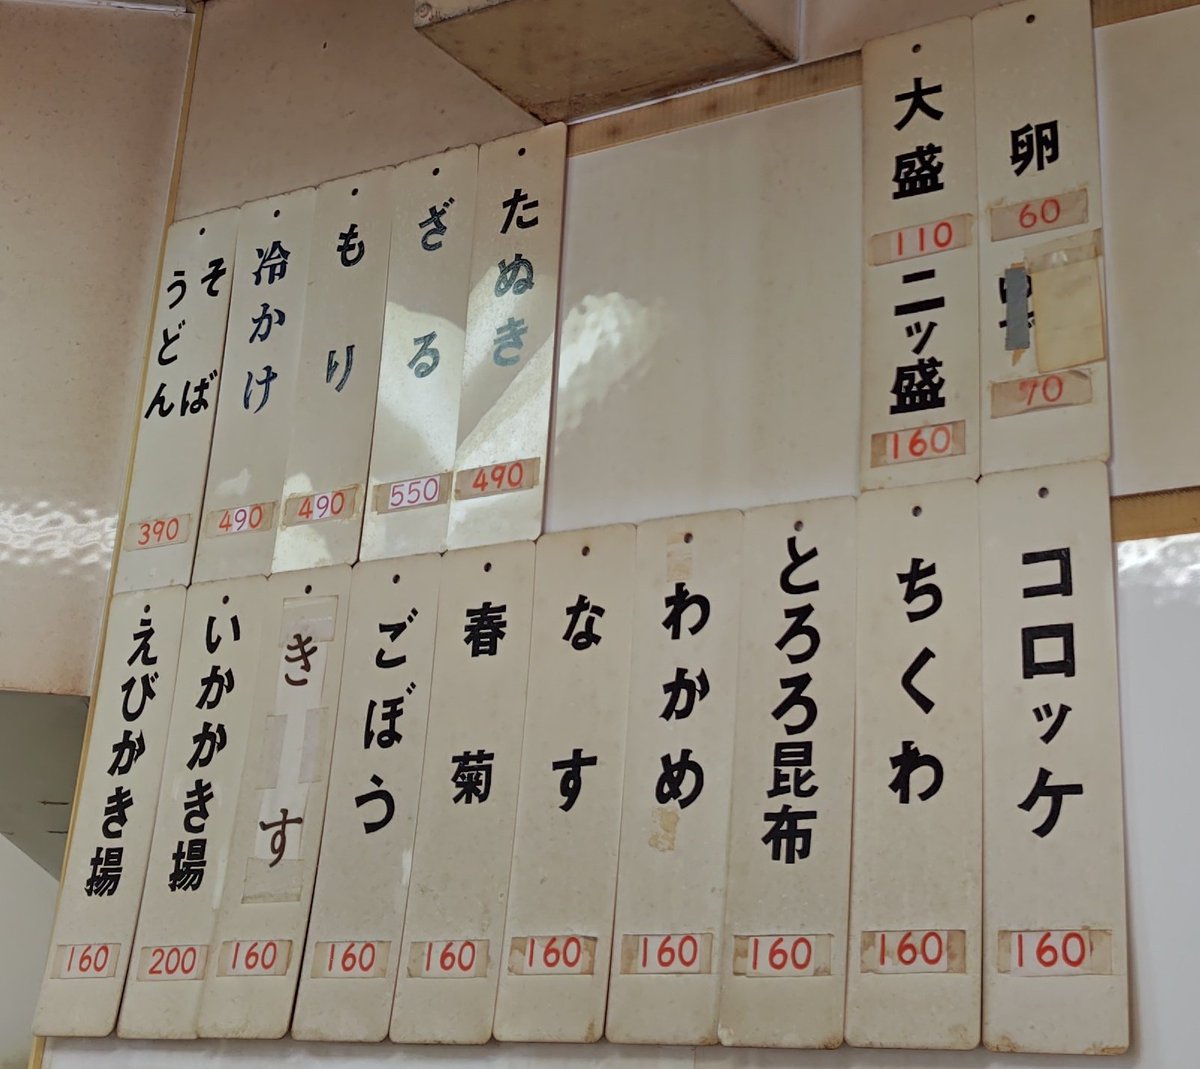 卵
60
70
大盛
110
二ッ盛
160
たぬき
490
ざる
550
もり
490
冷かけ
490
そば
うどん
390
コロッケ
160
ちくわ
160
とろろ昆布
160
わかめ
160
なす
160
春菊
160
ごぼう
160
きす
160
いかかき揚
200
えびかき揚
160